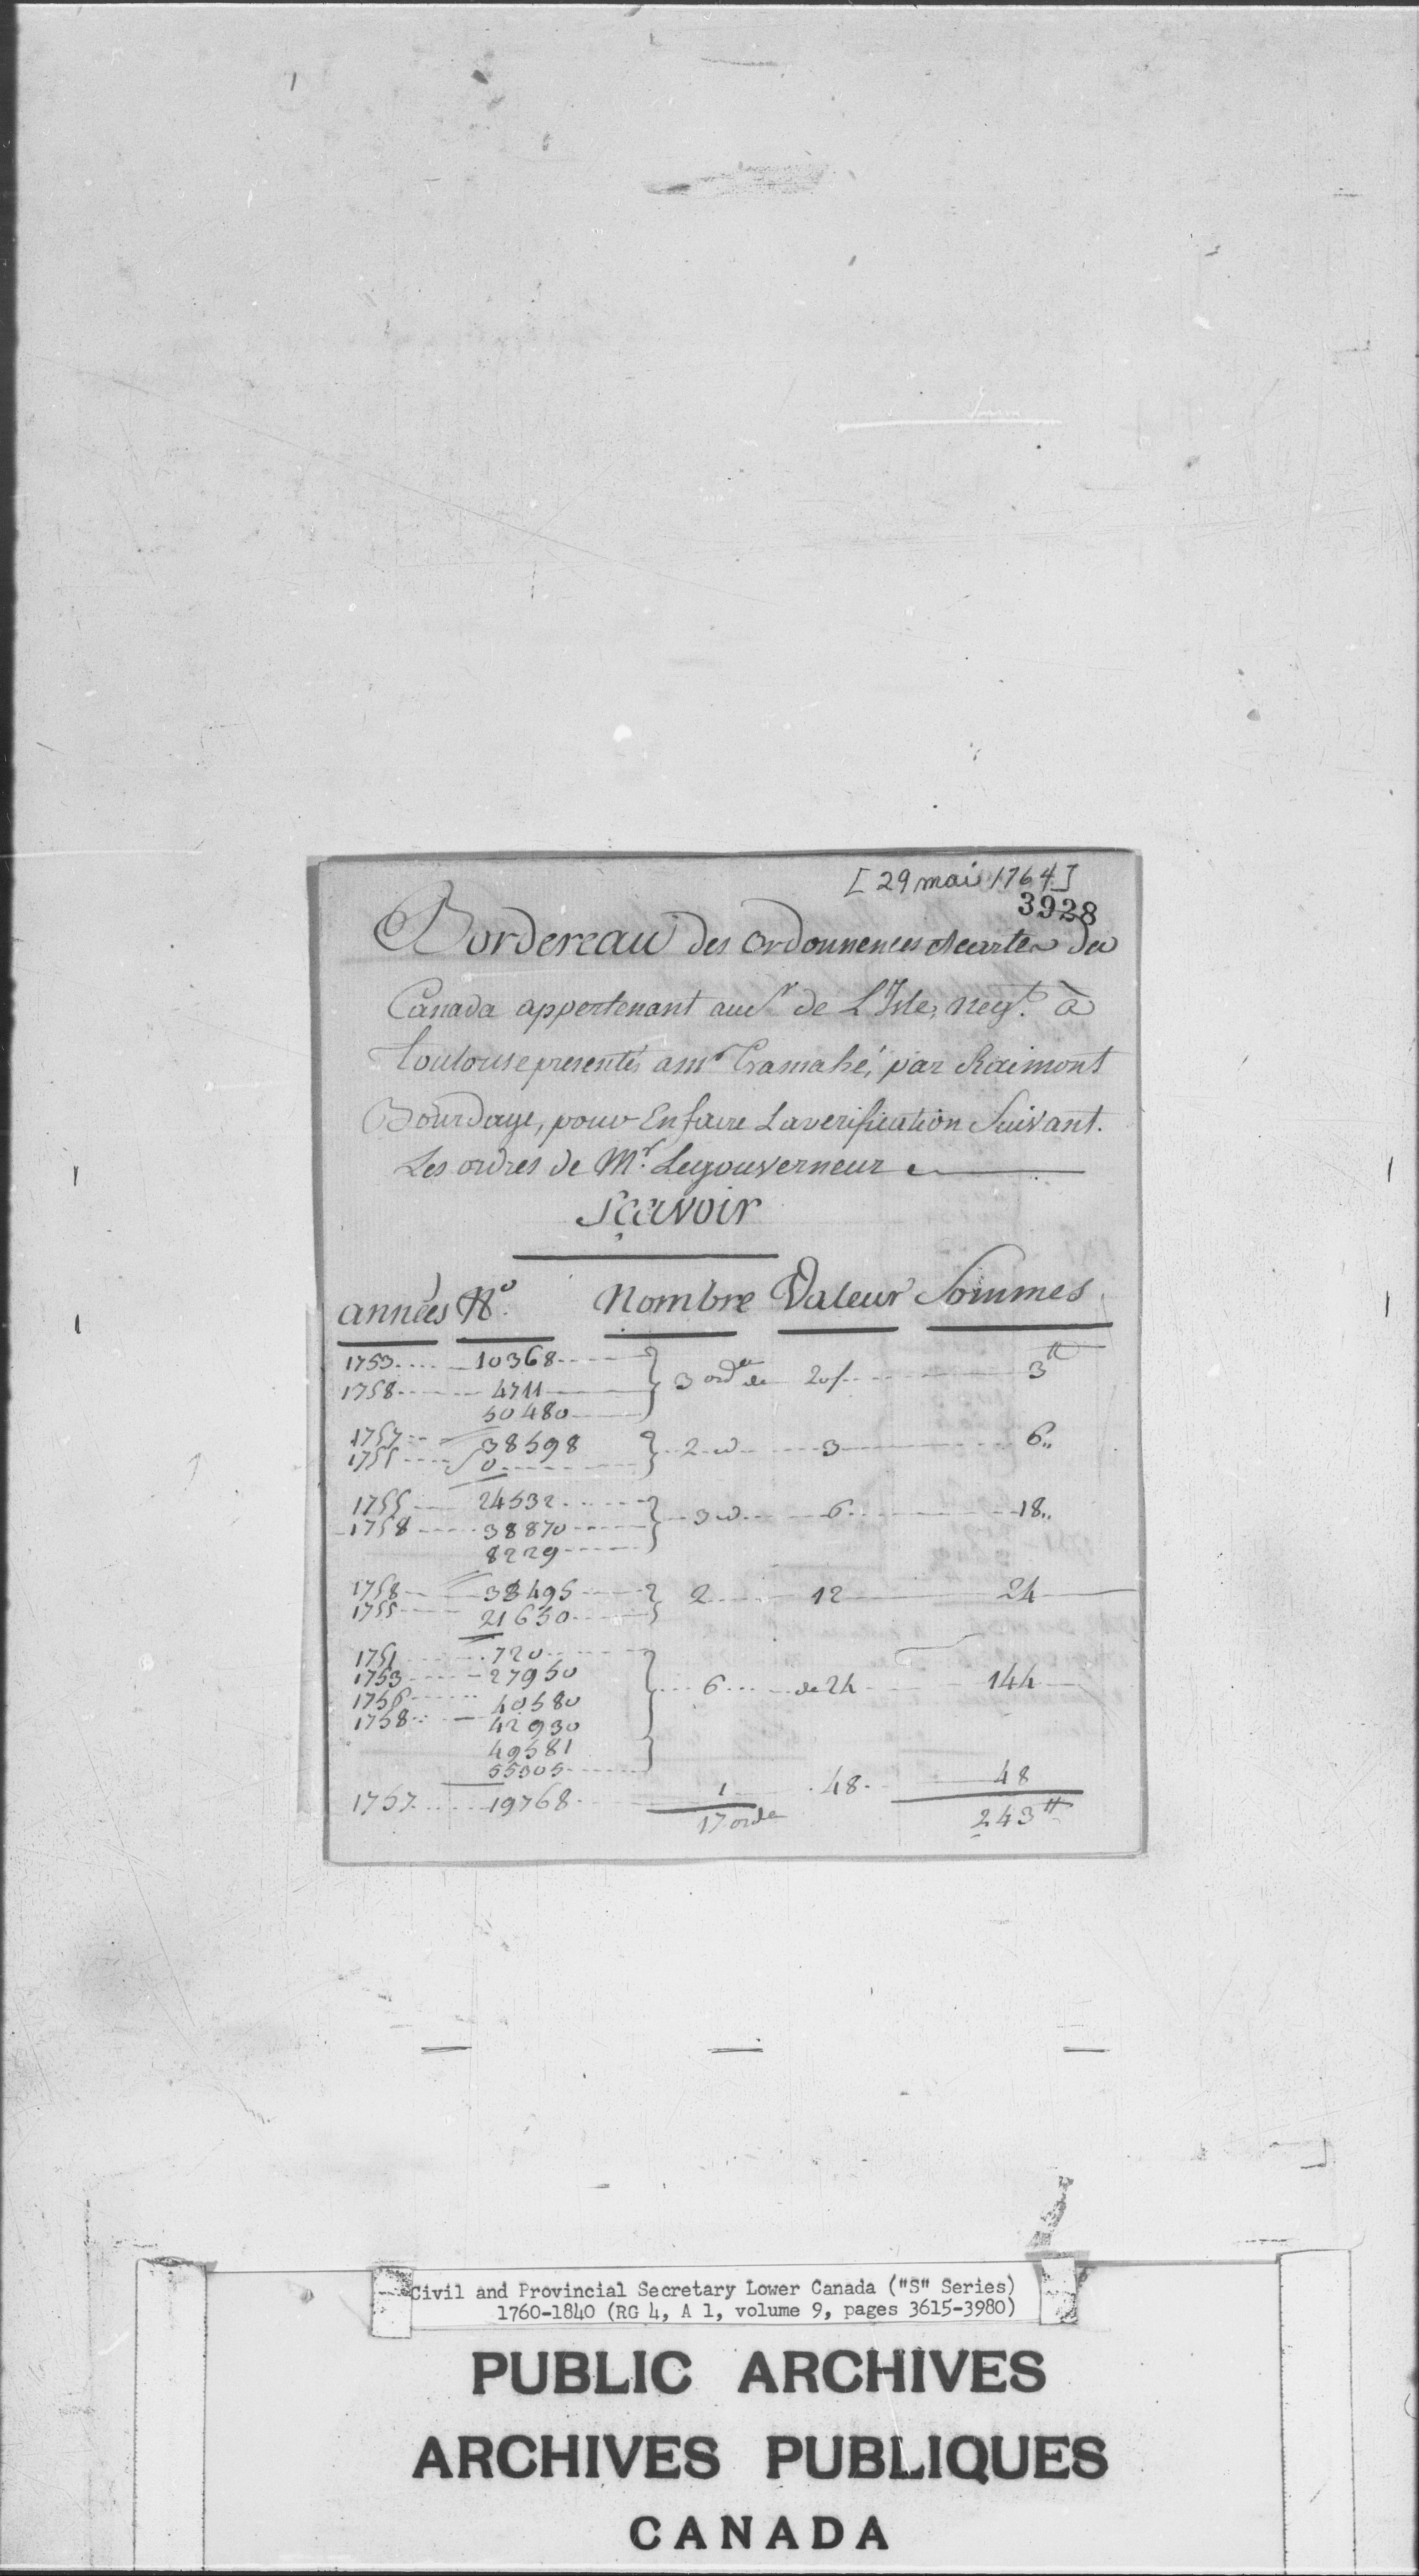 [29 mai 1764]
3928
Bordereau des ordonnences et cartes du
Canada appertenant au Sr de L'Isle, negt. à
Toulouse presentés a mr Cramahé, par Raimont
Bourdage, pour En faire La verification Suivant.
Les ordres de Mr. Le gouverneur
Sçavoir
années No. Nombre Valeur Sommes
1753 10368
1758 4711 3 ordce de 20s 3tt
50480
1757 38598 2 3 6
1755 50
1755 24532
1758 38870 3 6 18
8229
1758 38495 2 12 24
1755 21650
1751 720
1753 27950
1756 40580 6 de 24 144
1758 42930
49581
55305
1757 19768 1 48 48
17 ordce 243tt
Civil and Provincial Secretary Lower Canada ("S" Series)
1760-1840 (RG 4, A 1, volume 9, pages 3615-3980)
PUBLIC ARCHIVES
ARCHIVES PUBLIQUES
CANADA